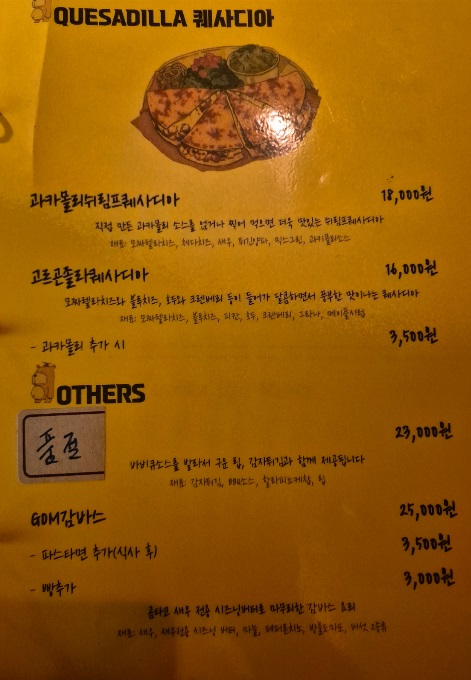 QUESADILLA 퀘사디아
과카몰리쉬림프퀘사디아 18,000원
직접 만든 과카몰리 소스를 얹거나 찍어 먹으면 더욱 맛있는 쉬림프퀘사디아
재료: 모짜렐라치즈, 체다치즈, 새우, 튀긴양파, 믹스그린, 과카몰리소스
고르곤졸라퀘사디아 16,000원
모짜렐라치즈와 블루치즈, 호두와 크랜베리 등이 들어가 달콤하면서 풍부한 맛이나는 퀘사디아
재료: 모짜렐라치즈, 블루치즈, 피칸, 호두, 크랜베리, 그라나, 메이플시럽
- 과카몰리 추가 시 3,500원
OTHERS
품절 23,000원
바비큐소스를 발라서 구운 립, 감자튀김과 함께 제공됩니다
재료: 감자튀김, BBQ소스, 할라피뇨케찹, 립
GOM감바스 25,000원
- 파스타면 추가(식사 후) 3,500원
- 빵추가 3,000원
곰타코 새우 전용 시즈닝버터로 마무리한 감바스 요리
재료: 새우, 새우전용 시즈닝 버터, 마늘, 페퍼론치노, 방울토마토, 버섯 2종류